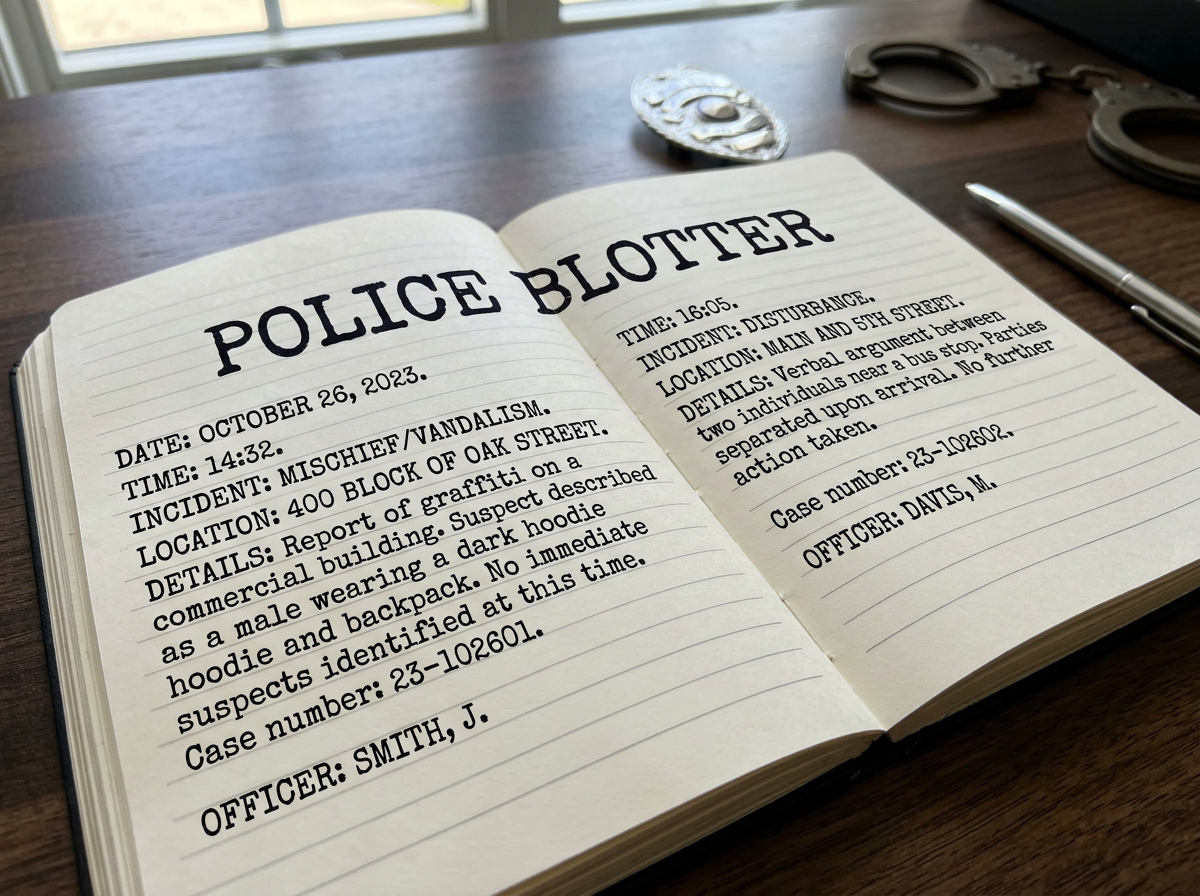 POLICE BLOTTER
DATE: OCTOBER 26, 2023.
TIME: 14:32.
INCIDENT: MISCHIEF/VANDALISM.
LOCATION: 400 BLOCK OF OAK STREET.
DETAILS: Report of graffiti on a
commercial building. Suspect described
as a male wearing a dark hoodie
hoodie and backpack. No immediate
suspects identified at this time.
Case number: 23-102601.
OFFICER: SMITH, J.
TIME: 16:05.
INCIDENT: DISTURBANCE.
LOCATION: MAIN AND 5TH STREET.
DETAILS: Verbal argument between
two individuals near a bus stop. Parties
separated upon arrival. No further
action taken.
Case number: 23-102602.
OFFICER: DAVIS, M.